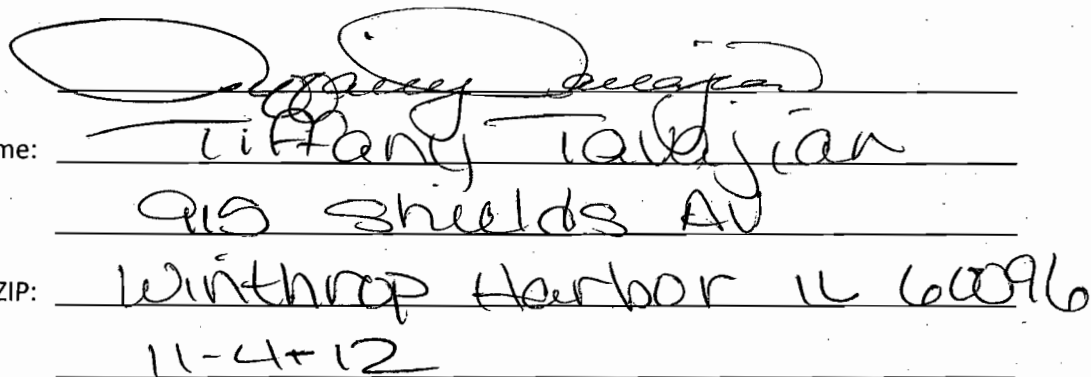 me: Tiffany Tavdjian
915 Shields AV
ZIP: Winthrop Harbor IL 60096
11-4-12